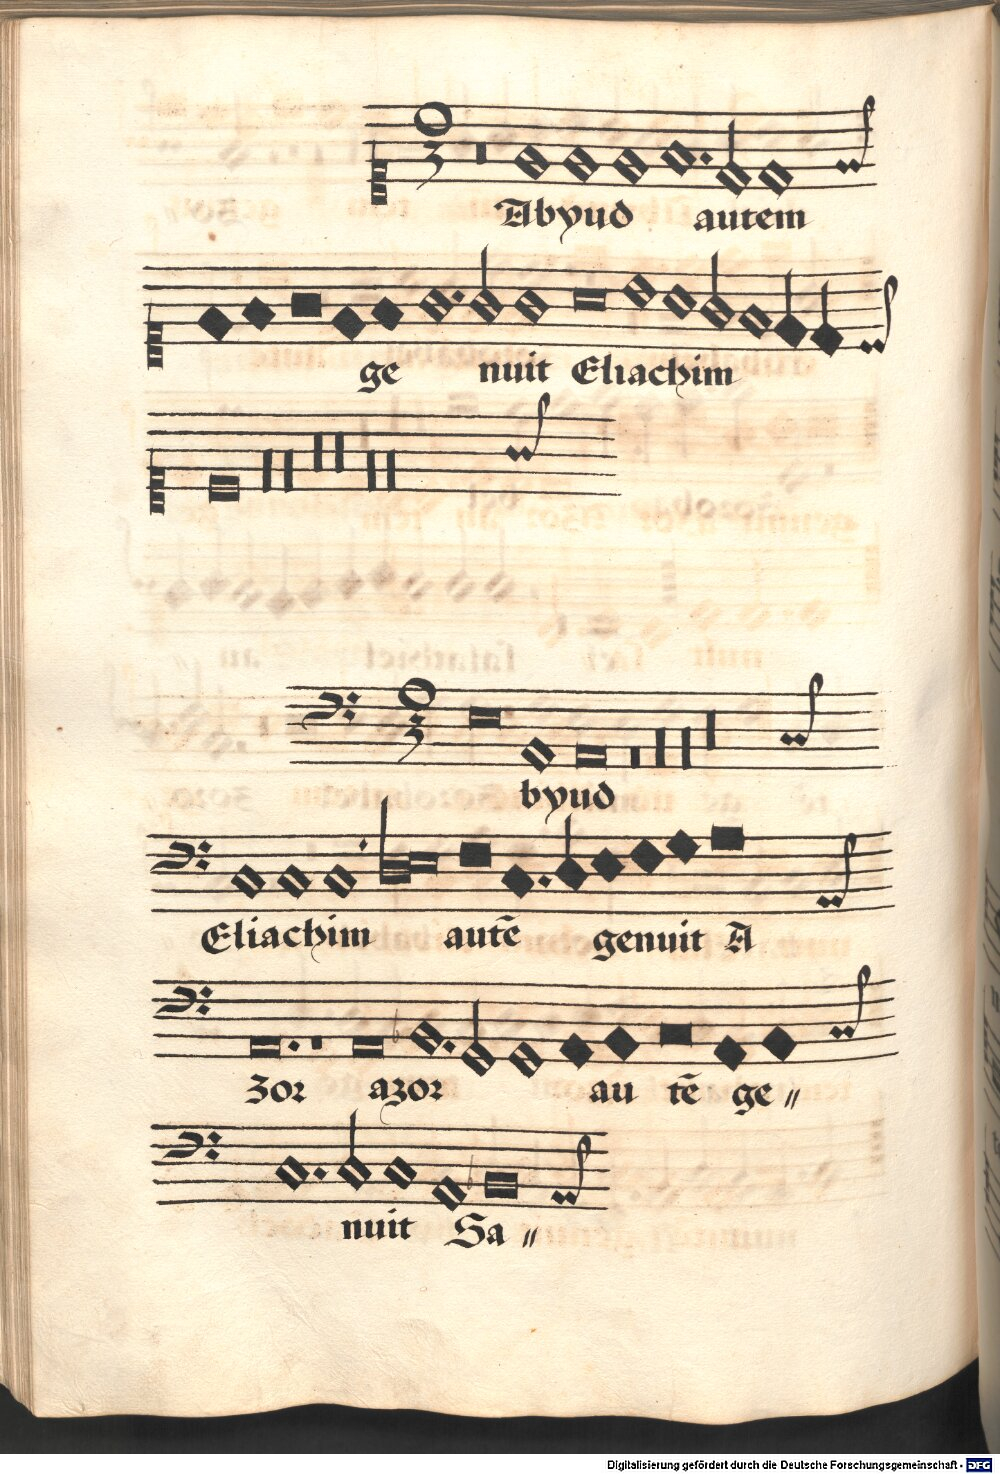 Abyud autem
ge nuit Eliachim
byud
Eliachim autē genuit A
zor azor au tē ge〃
nuit Sa〃
Digitalisierung gefördert durch die Deutsche Forschungsgemeinschaft - DFG